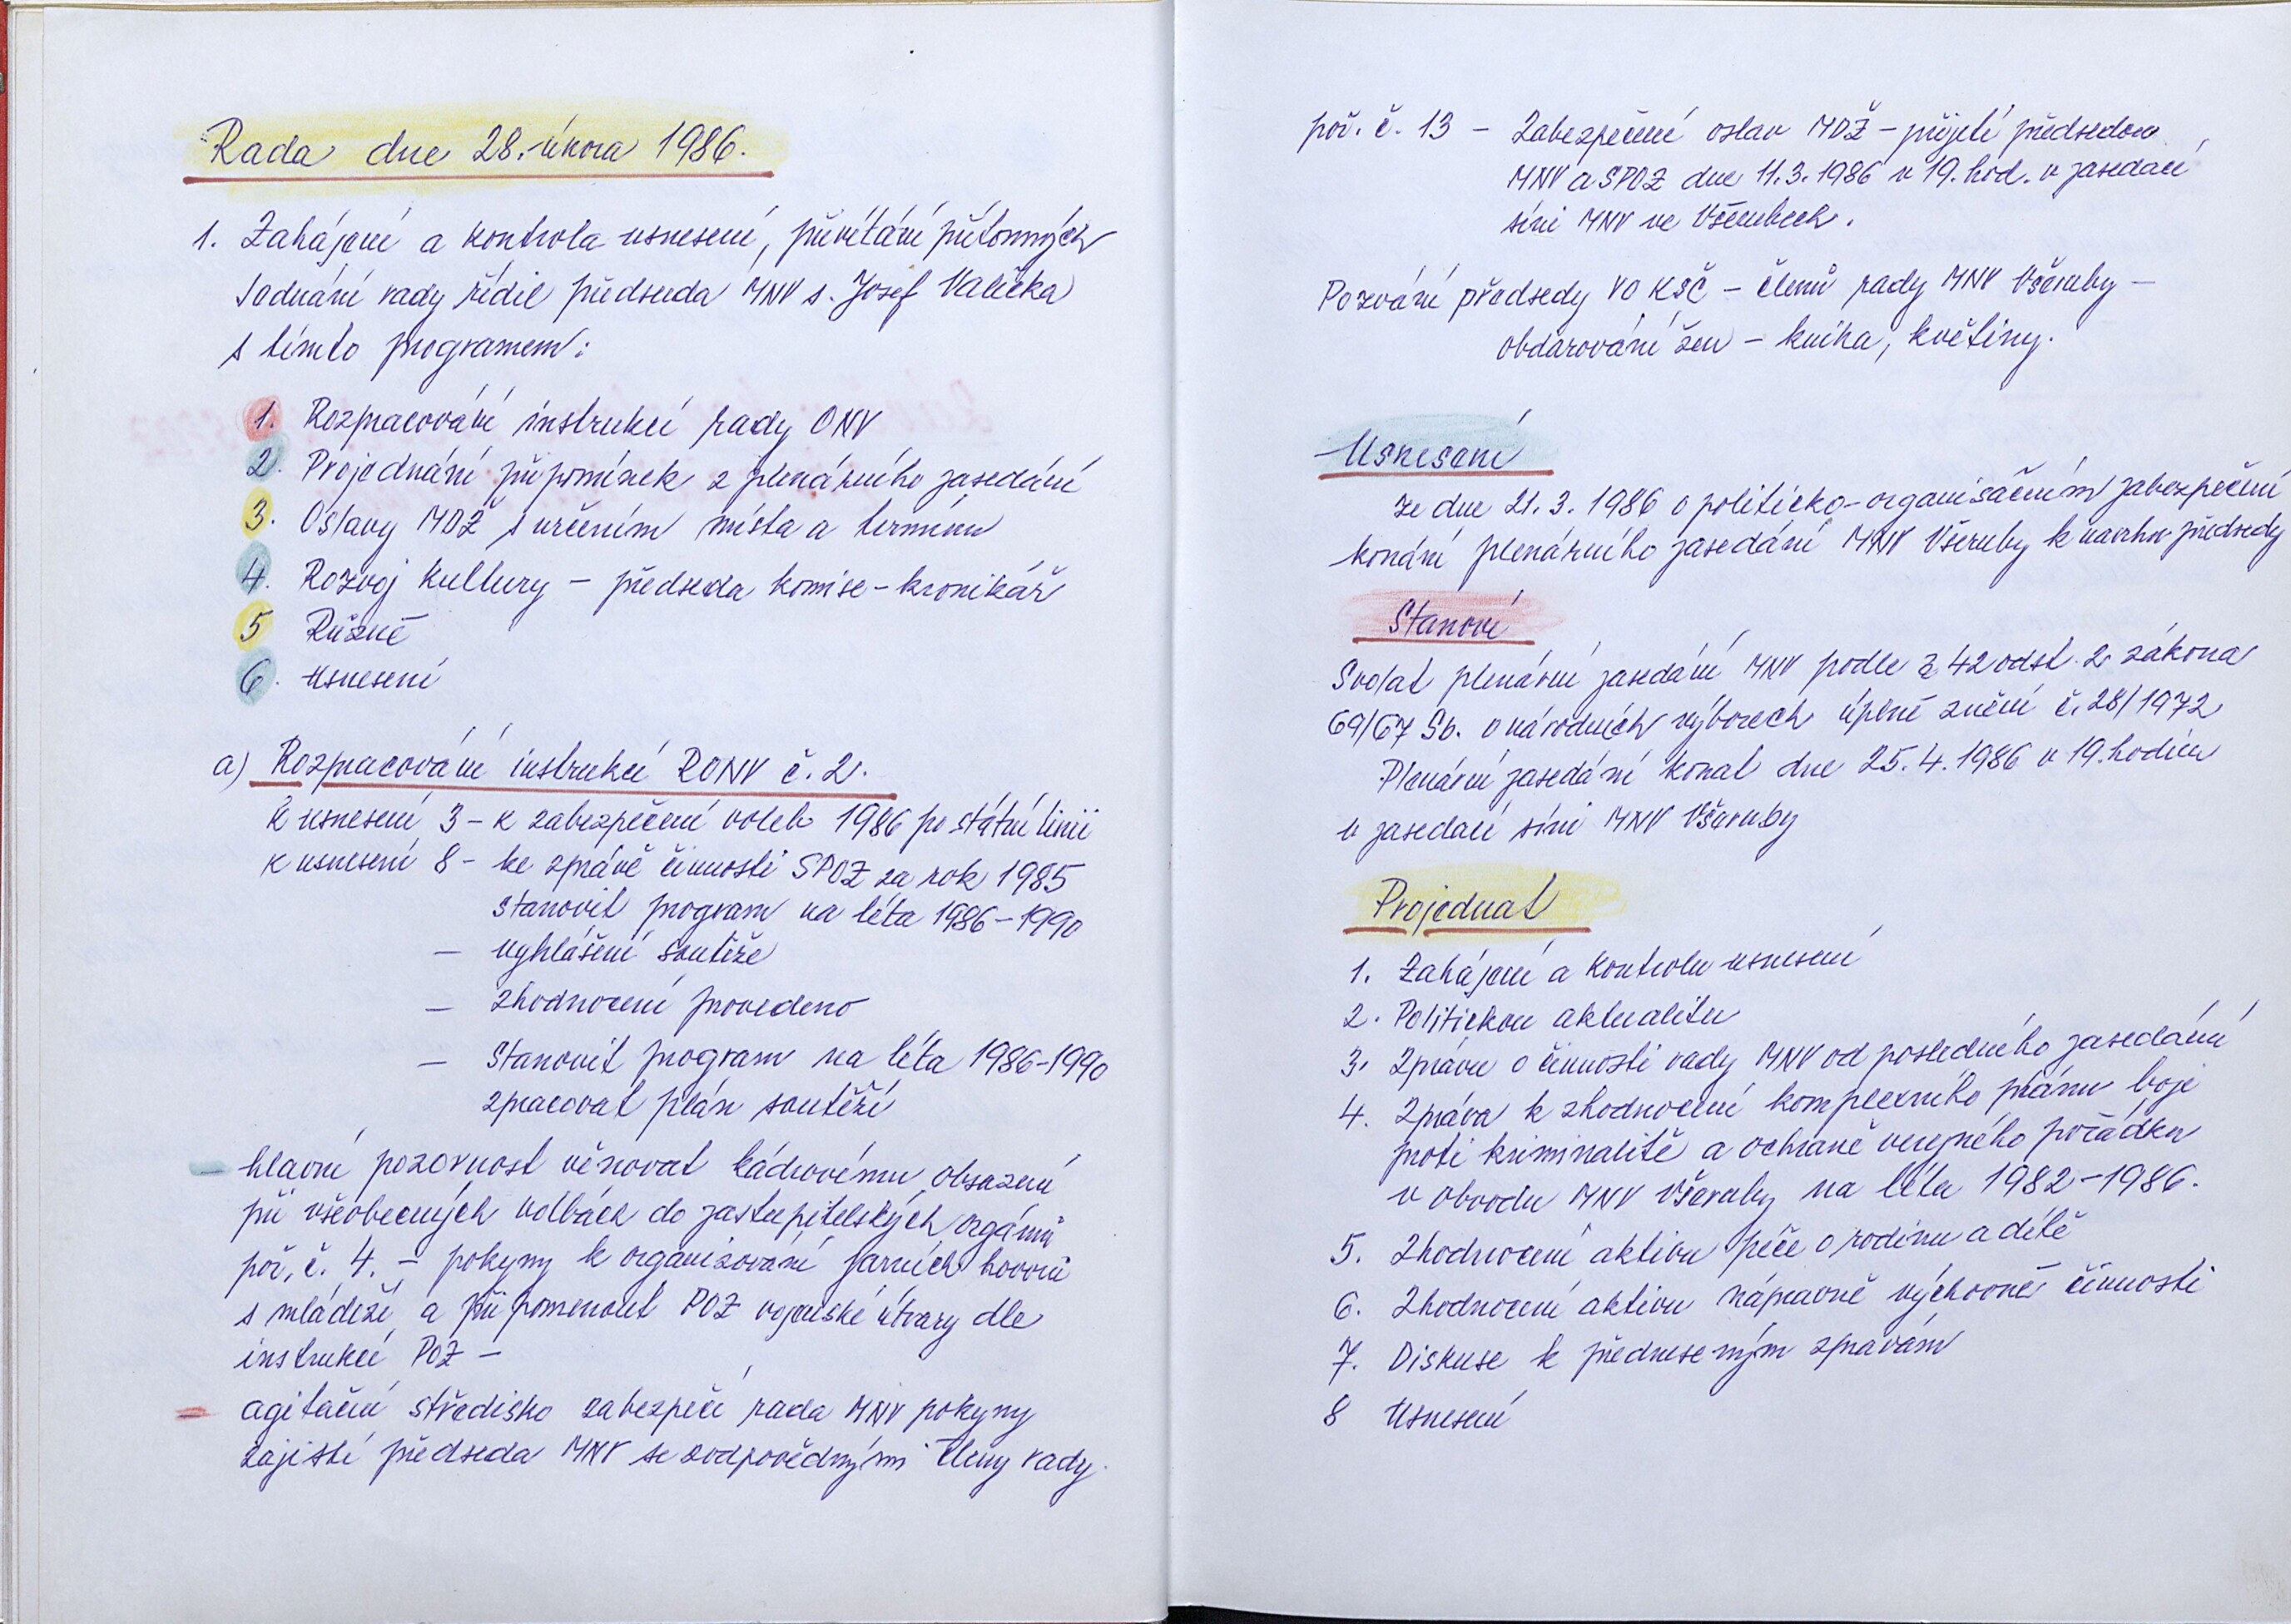 Rada dne 28. února 1986.
1. Zahájení a kontrola usnesení, přivítání přítomných
Jednání rady řídil předseda MNV s. Josef Valečka
s tímto programem:
1. Rozpracování instrukcí rady ONV
2. Projednání připomínek z plenárního zasedání
3. Oslavy MDŽ s určením místa a termínu
4. Rozvoj kultury – předseda komise – kronikář
5 Různé
6. Usnesení
a) Rozpracování instrukcí RONV č. 2.
K usnesení 3 – k zabezpečení voleb 1986 po státní linii
k usnesení 8 – ke zprávě činnosti SPOZ za rok 1985
stanovit program na léta 1986–1990
– vyhlášení soutěže
– zhodnocení provedeno
– Stanovit program na léta 1986–1990
zpracovat plán soutěží
– hlavní pozornost věnovat kádrovému obsazení
při všeobecných volbách do zastupitelských orgánů
poř. č. 4. – pokyny k organizování jarních hovorů
s mládeží a připomenout POZ vojenské útvary dle
instrukcí POZ –
– agitační středisko zabezpečí rada MNV pokyny
zajistí předseda MNV se zodpovědnými členy rady.
poř. č. 13 – Zabezpečení oslav MDŽ – přijetí předsedou
MNV a SPOZ dne 11.3.1986 v 19. hod. v zasedací
síni MNV ve Všerubech.
Pozvání předsedy VO KSČ – členů rady MNV Všeruby –
obdarování žen – kniha, květiny.
Usnesení
ze dne 21.3.1986 o politicko-organisačním zabezpečení
konání plenárního zasedání MNV Všeruby k návrhu předsedy
Stanoví
Svolat plenární zasedání MNV podle § 42 odst. 2. zákona
69/67 Sb. o národních výborech úplné znění č. 28/1972
Plenární zasedání konat dne 25.4.1986 v 19. hodin
v zasedací síni MNV Všeruby
Projednat
1. Zahájení a kontrolu usnesení
2. Politickou aktualitu
3. Zprávu o činnosti rady MNV od posledního zasedání
4. Zpráva k zhodnocení komplexního plánu boje
proti kriminalitě a ochraně veřejného pořádku
v obvodu MNV Všeruby na léta 1982–1986.
5. Zhodnocení aktivu péče o rodinu a dítě
6. Zhodnocení aktivu nápravně výchovné činnosti
7. Diskuse k předneseným zprávám
8 Usnesení